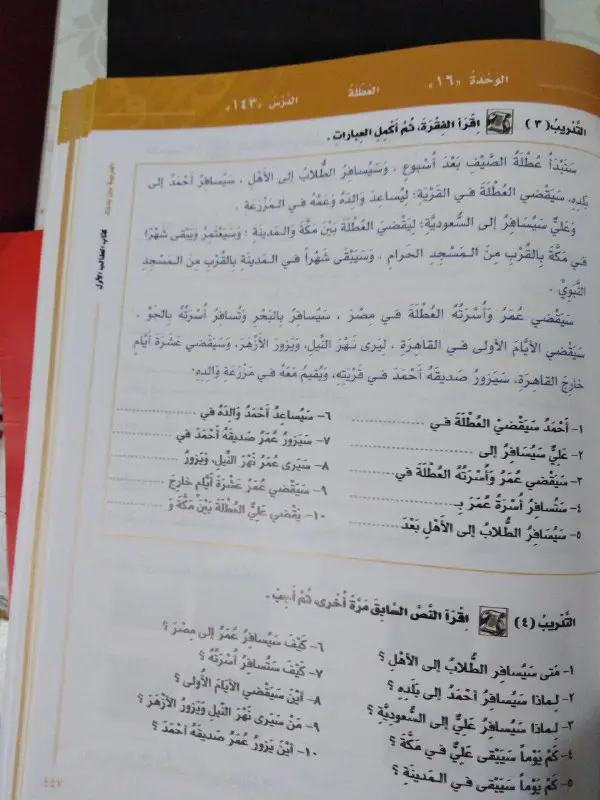 الوَحْدَةُ «١٦» العُطْلَةُ الدَّرْسُ «١٤٣»
التَّدْرِيبُ (٣) اِقْرَأ الفِقْرَةَ، ثُمَّ أَكْمِلِ العِبَارَاتِ .
سَتَبْدَأُ عُطْلَةُ الصَّيْفِ بَعْدَ أُسْبوعٍ ، وَسَيُسافِرُ الطُّلابُ إلى الأَهْلِ . سَيُسافِرُ أَحْمَدُ إلى
بَلَدِهِ، سَيَقْضي العُطْلَةَ في القَرْيَةِ؛ لِيُساعِدَ والِدَهُ وَعَمَّهُ في المَزْرَعَةِ .
وَعَلِيٌّ سَيُسافِرُ إلى السُّعودِيَّةِ؛ لِيَقْضيَ العُطْلَةَ بَيْنَ مَكَّةَ وَالمَدينَةِ ؛ وَسَيَعْتَمِرُ وَيَبْقى شَهْرًا
في مَكَّةَ بِالقُرْبِ مِنَ المَسْجِدِ الحَرامِ . وَسَيَبْقَى شَهْراً في المَدينَةِ بِالقُرْبِ مِنَ المَسْجِدِ
النَّبَوِيِّ .
سَيَقْضي عُمَرُ وَأُسْرَتُهُ العُطْلَةَ في مِصْرَ ، سَيُسافِرُ بِالبَحْرِ وَتُسافِرُ أُسْرَتُهُ بِالجَوِّ .
سَيَقْضي الأَيَّامَ الأولى في القاهِرَةِ ، لِيَرى نَهْرَ النِّيلِ، وَيَزورَ الأَزْهَرَ، وَسَيَقْضي عَشْرَةَ أَيَّامٍ
خارِجَ القاهِرَةِ، سَيَزورُ صَديقَهُ أَحْمَدَ في قَرْيَتِهِ، وَيُقيمُ مَعَهُ في مَزْرَعَةِ والِدِهِ.
١- أَحْمَدُ سَيَقْضي العُطْلَةَ في ..................
٢- عَلِيٌّ سَيُسافِرُ إلى ..................
٣- سَيَقْضي عُمَرُ وَأُسْرَتُهُ العُطْلَةَ في ..................
٤- سَتُسافِرُ أُسْرَةُ عُمَرَ بِـ ..................
٥- سَيُسافِرُ الطُّلابُ إلى الأَهْلِ بَعْدَ ..................
٦- سَيُساعِدُ أَحْمَدُ والِدَهُ في ..................
٧- سَيَزورُ عُمَرُ صَديقَهُ أَحْمَدَ في ..................
٨- سَيَرى عُمَرُ نَهْرَ النِّيلِ، وَيَزورُ ..................
٩- سَيَقْضي عُمَرُ عَشْرَةَ أَيَّامٍ خارِجَ ..................
١٠- يَقْضي عَلِيٌّ العُطْلَةَ بَيْنَ مَكَّةَ وَ ..................
التَّدْرِيبُ (٤) اِقْرَأ النَّصَّ السَّابِقَ مَرَّةً أُخْرى، ثُمَّ أَجِبْ.
١- مَتى سَيُسافِر الطُّلابُ إلى الأَهْلِ ؟
٢- لِماذا سَيُسافِرُ أَحْمَدُ إلى بَلَدِهِ ؟
٣- لِماذا سَيُسافِرُ عَلِيٌّ إلى السُّعودِيَّةِ ؟
٤- كَمْ يَوْماً سَيَبْقى عَلِيٌّ في مَكَّةَ ؟
٥- كَمْ يَوْماً سَيَبْقى في المَدينَةِ ؟
٦- كَيْفَ سَيُسافِرُ عُمَرُ إلى مِصْرَ ؟
٧- كَيْفَ سَتُسافِرُ أُسْرَتُهُ ؟
٨- أَيْنَ سَيَقْضي الأَيَّامَ الأُولى ؟
٩- مَنْ سَيَرى نَهْرَ النِّيلِ وَيَزورُ الأَزْهَرَ ؟
١٠- أَيْنَ يَزورُ عُمَرُ صَديقَهُ أَحْمَدَ ؟
كتاب الطالب الأول
٤٤٧